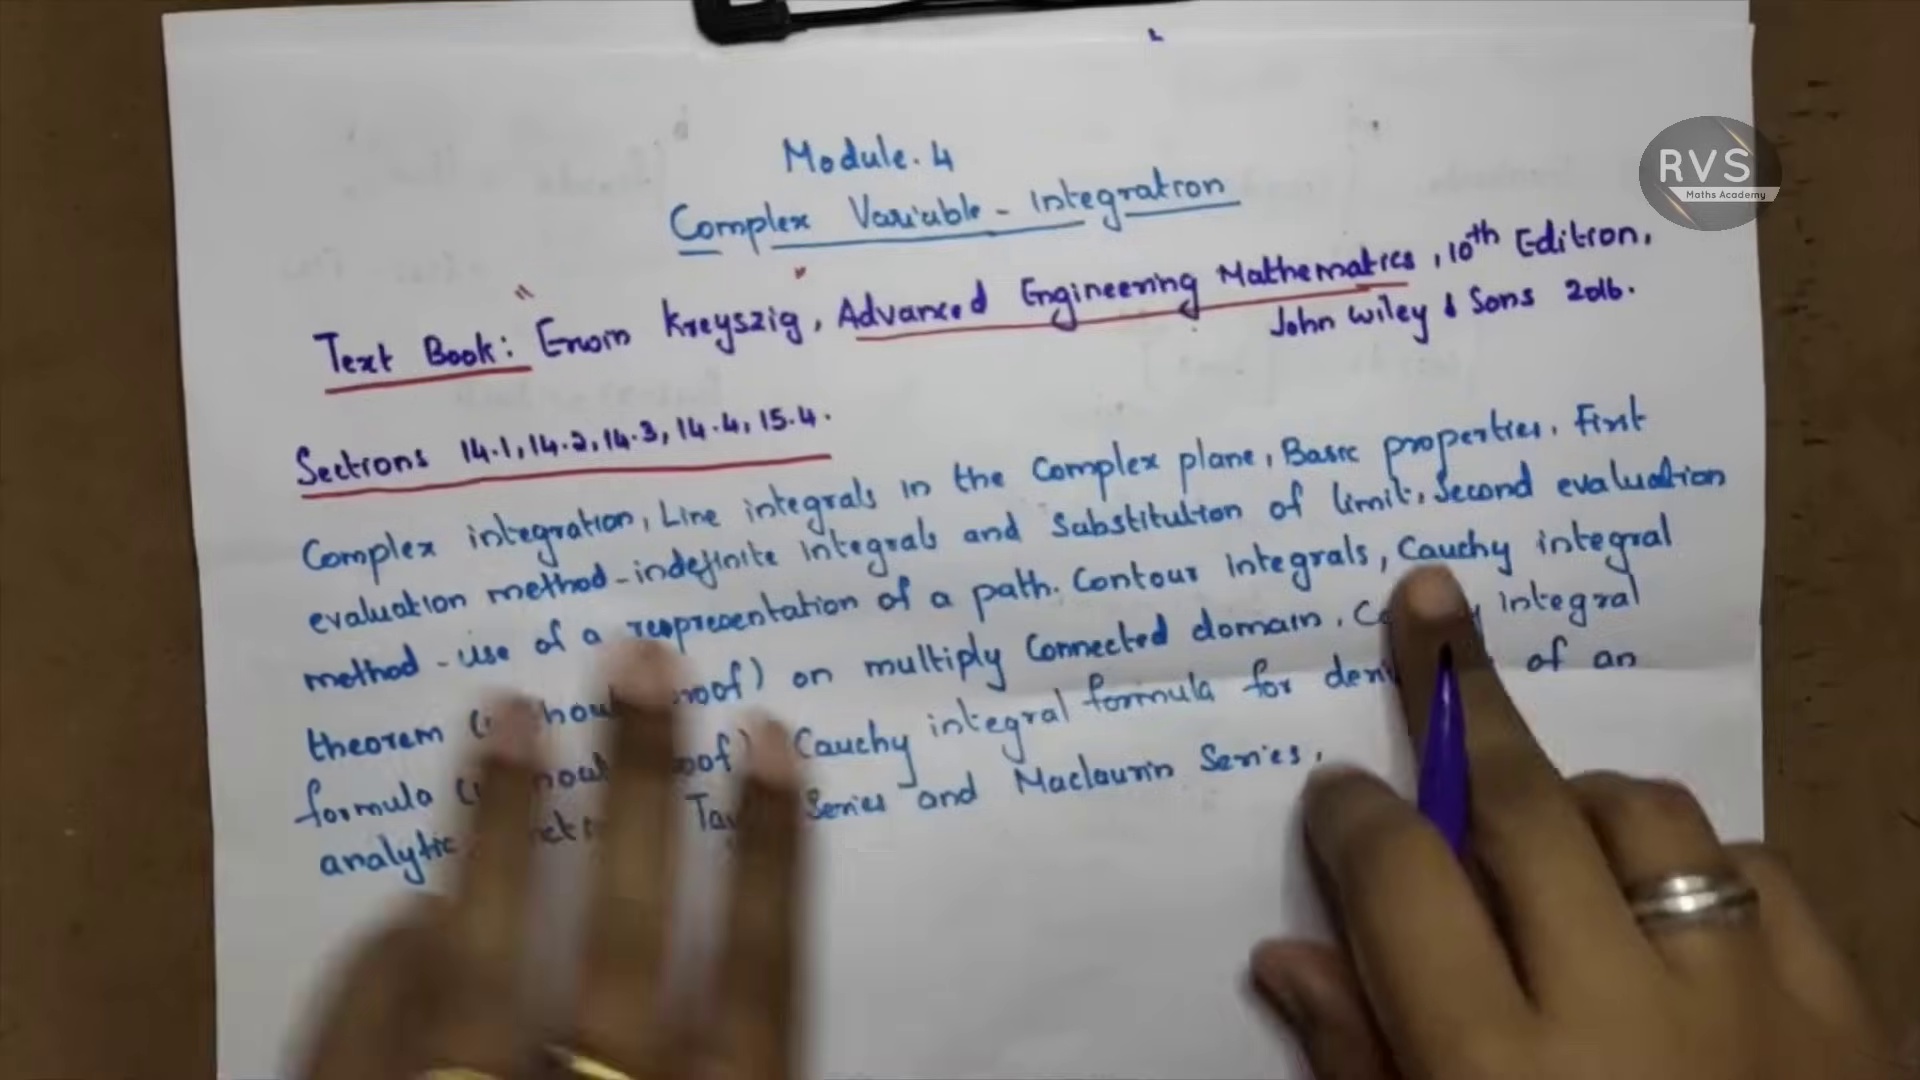 Module. 4
Complex Variable - Integration
RVS
Maths Academy
Text Book: Erwin Kreyszig, Advanced Engineering Mathematics, 10th Edition,
John Wiley & Sons 2016.
Sections 14.1, 14.2, 14.3, 14.4, 15.4.
Complex integration, Line integrals in the Complex plane, Basic properties. First
evaluation method - indefinite integrals and Substitution of limit. Second evaluation
method - use of a representation of a path. Contour integrals, Cauchy integral
theorem on multiply Connected domain. integral
formula Cauchy integral formula for of an
analytic Series and Maclaurin Series.